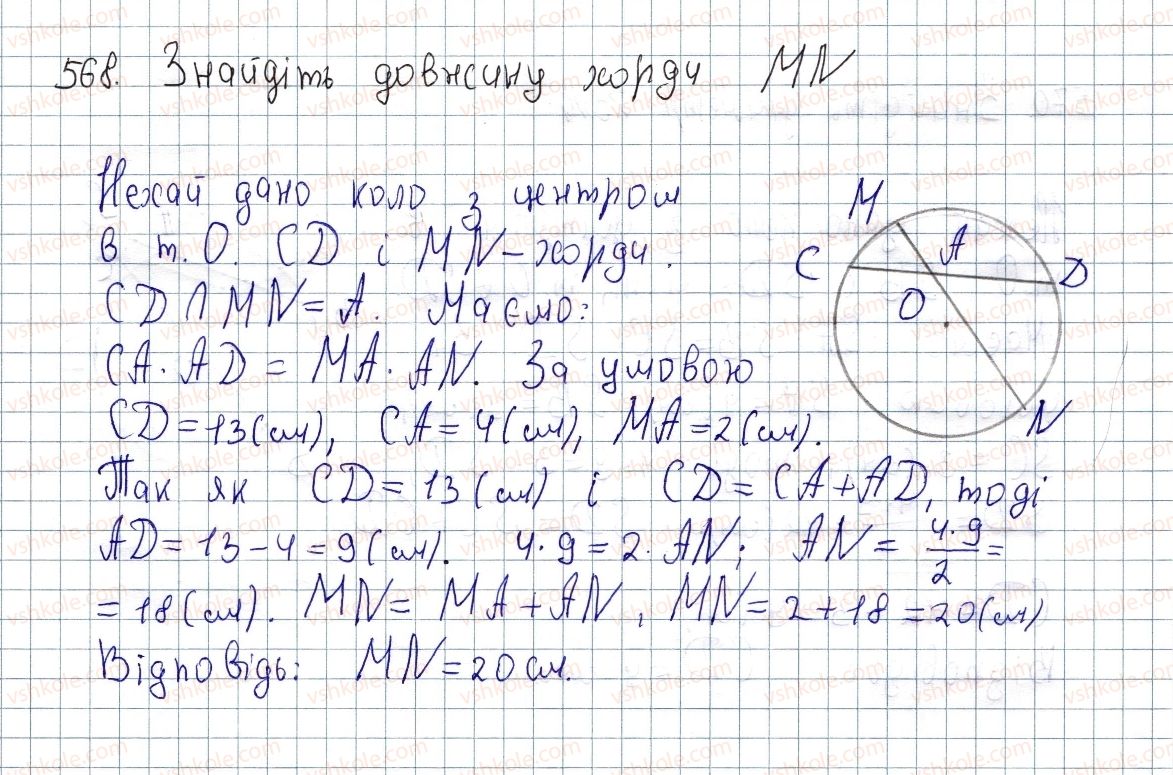 568. Знайдіть довжину хорди MN
Нехай дано коло з центром
в т. O. CD і MN – хорди.
CD ∩ MN = A. Маємо:
CA · AD = MA · AN. За умовою
CD = 13 (см), CA = 4 (см), MA = 2 (см).
Так як CD = 13 (см) і CD = CA + AD, тоді
AD = 13 – 4 = 9 (см). 4 · 9 = 2 · AN; AN = 4 · 9 / 2 =
= 18 (см). MN = MA + AN, MN = 2 + 18 = 20 (см)
Відповідь: MN = 20 см.
M
A
C
D
O
N
vshkole.com